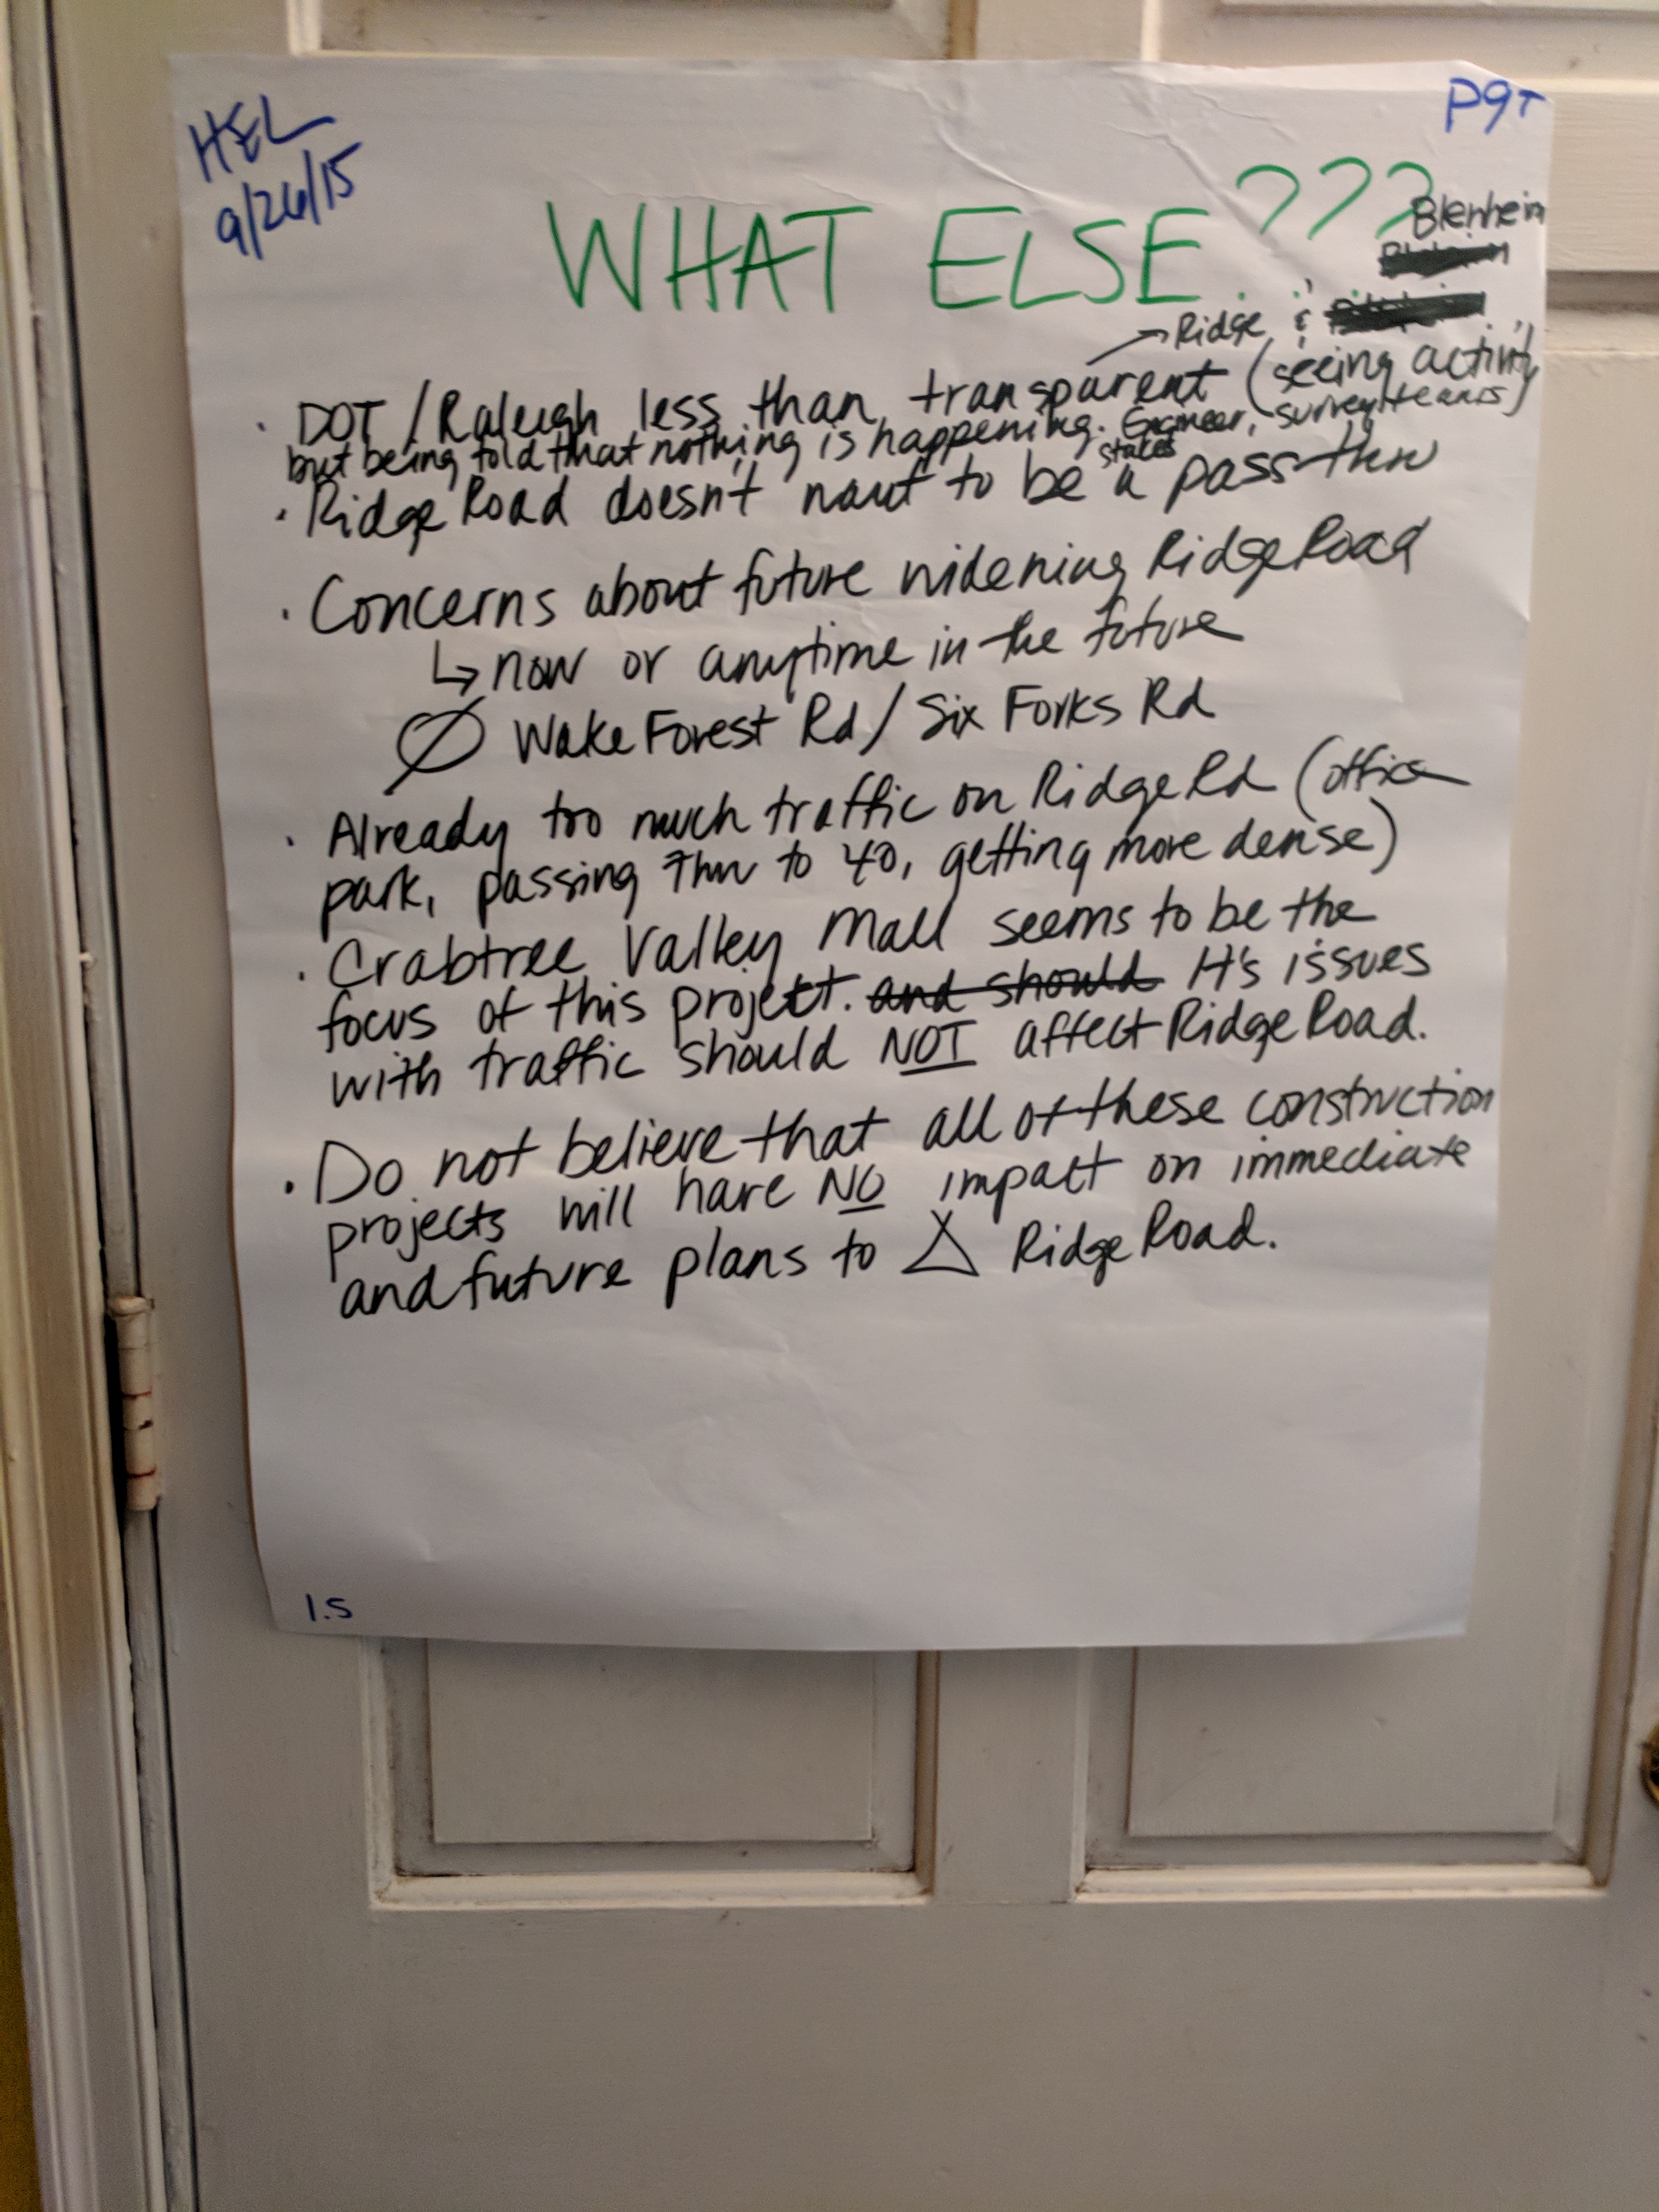 HEL
9/26/15
P9T
WHAT ELSE???
Blenheim
→ Ridge &
· DOT/Raleigh less than transparent (seeing activity
but being told that nothing is happening. Engineer, survey teams)
stakes
· Ridge Road doesn't want to be a pass thru
· Concerns about future widening Ridge Road
↳ now or anytime in the future
Ø Wake Forest Rd / Six Forks Rd
· Already too much traffic on Ridge Rd (office
park, passing thru to 40, getting more dense)
· Crabtree Valley Mall seems to be the
focus of this project. and should It's issues
with traffic should NOT affect Ridge Road.
· Do not believe that all of these construction
projects will have NO impact on immediate
and future plans to △ Ridge Road.
1.5